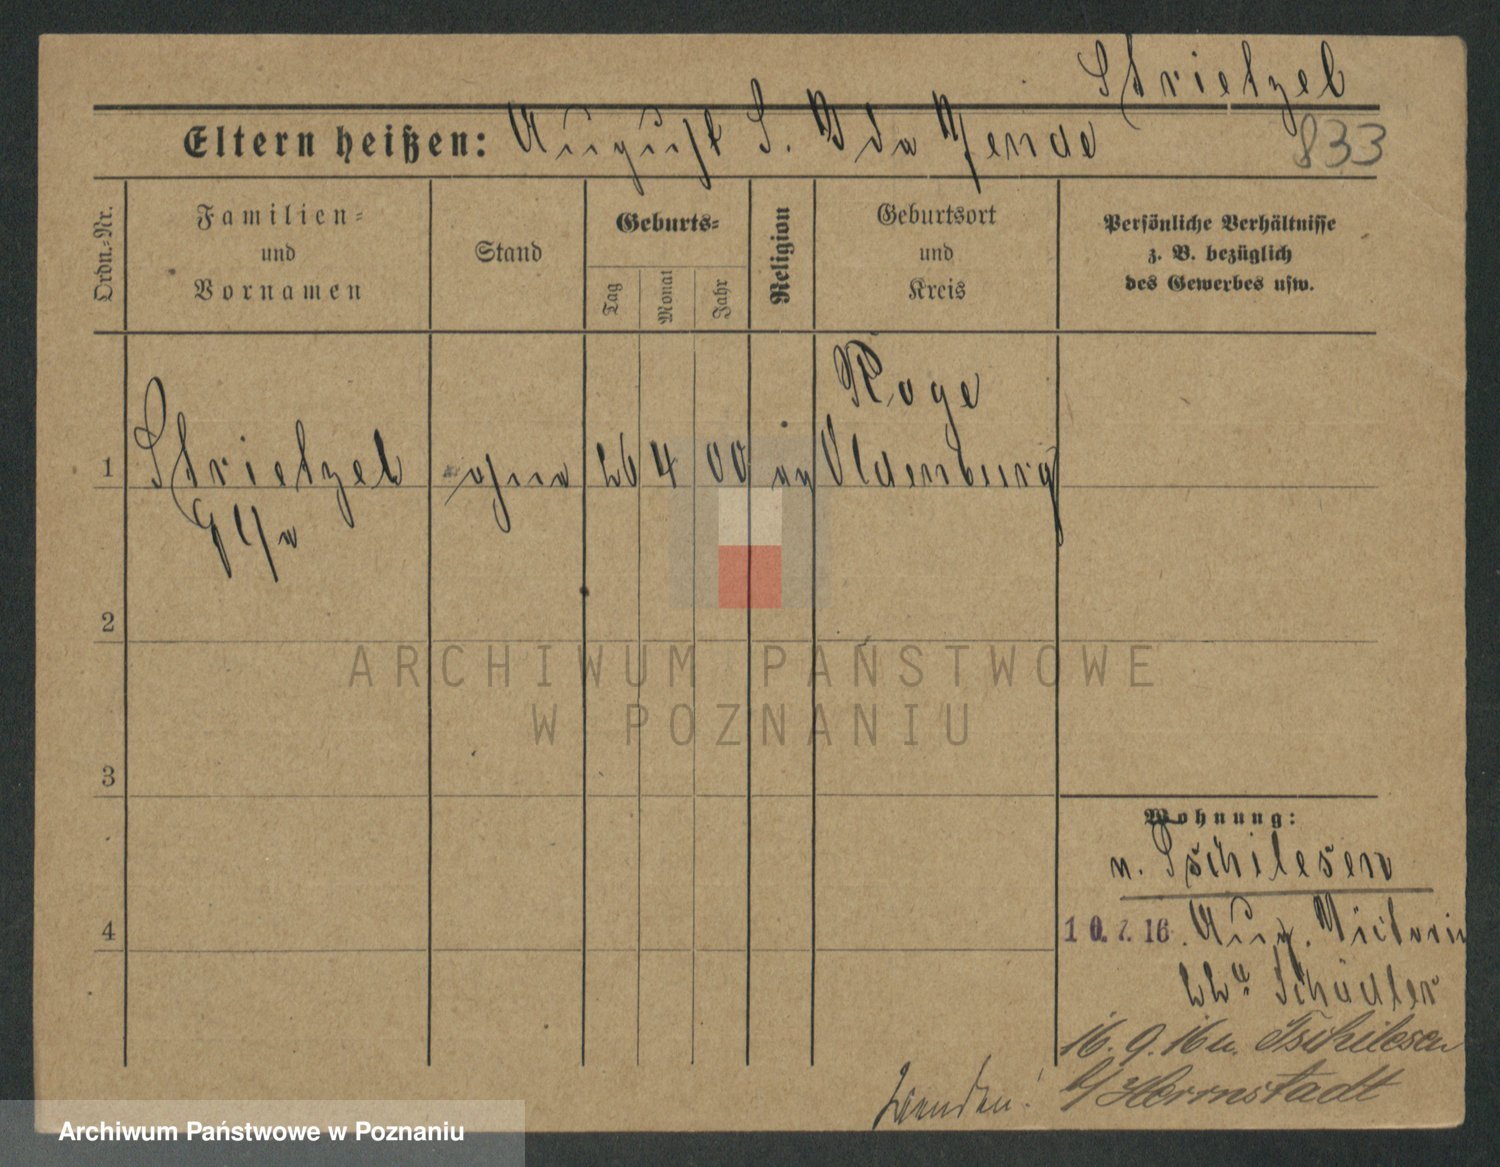 Strietzel
Eltern heißen: August S. Ida Jende
833
Ordn.-Nr.
Familien-
und
Vornamen
Stand
Geburts-
Tag
Monat
Jahr
Religion
Geburtsort
und
Kreis
Persönliche Verhältnisse
z. B. bezüglich
des Gewerbes usw.
Roge
1 Strietzel ohne 26 4 00 ev Oldenburg
2
3
4
Wohnung:
n. Tschilesen
10. 7. 16. Aug. Victoria
Schädler
16. 9. 16 n. Tschilesen
b/ Herrnstadt
Wenden!
ARCHIWUM PAŃSTWOWE
W POZNANIU
Archiwum Państwowe w Poznaniu